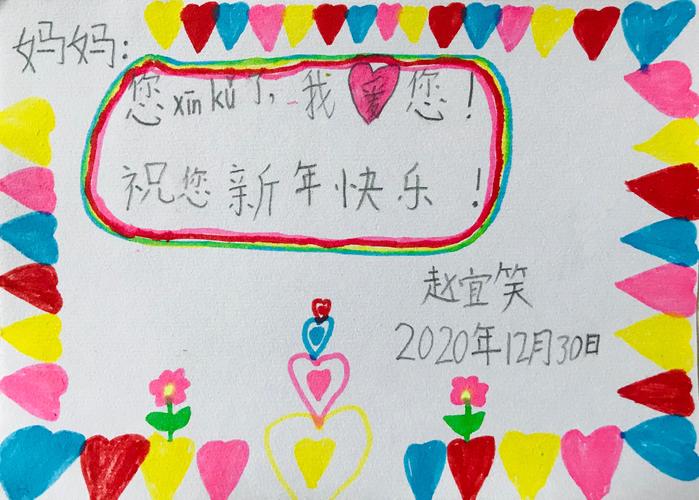 妈妈：
您xīn kǔ了，我爱您！
祝您新年快乐！
赵宜笑
2020年12月30日